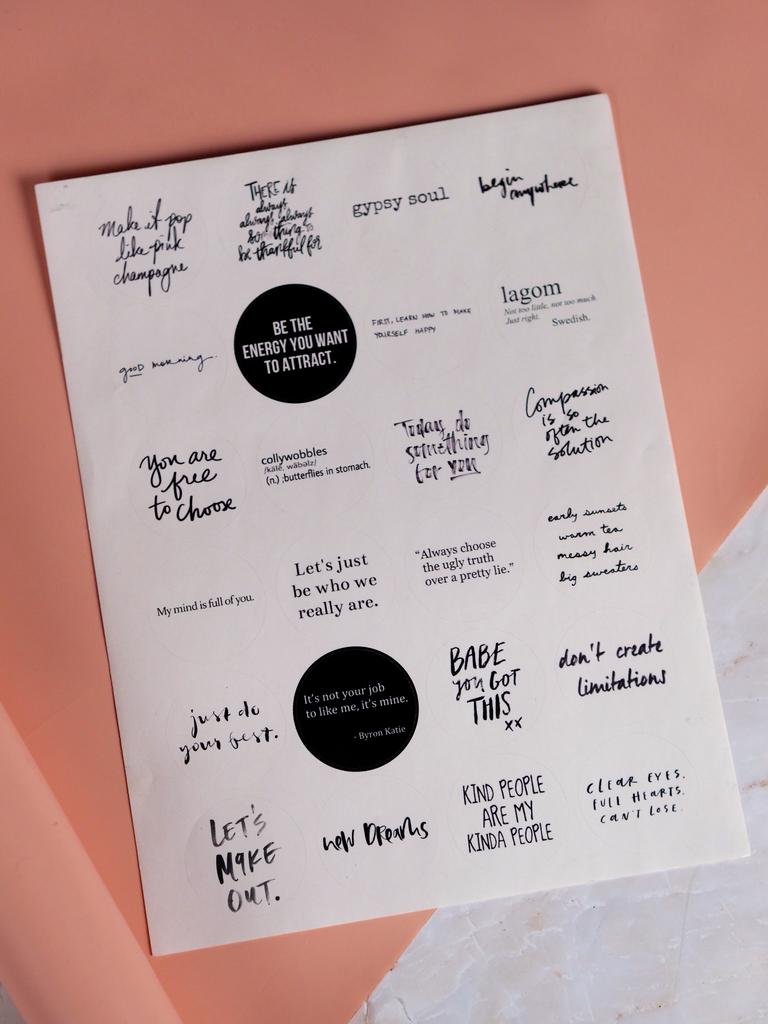 Make it pop
like pink
champagne
THERE IS
always,
always, always
something to
be thankful for
gypsy soul
begin
anywhere
good morning.
BE THE
ENERGY YOU WANT
TO ATTRACT.
FIRST, LEARN HOW TO MAKE
YOURSELF HAPPY
lagom
Not too little, not too much.
Just right.
Swedish.
you are
free
to choose
collywobbles
/käle, wäbəlz/
(n.) ;butterflies in stomach.
Today, do
something
for you
Compassion
is so
often the
solution
My mind is full of you.
Let's just
be who we
really are.
“Always choose
the ugly truth
over a pretty lie.”
early sunsets
warm tea
messy hair
big sweaters
just do
your best.
It's not your job
to like me, it's mine.
- Byron Katie
BABE
you GOT
THIS
xx
don't create
limitations
LET'S
MAKE
OUT.
new DReams
KIND PEOPLE
ARE MY
KINDA PEOPLE
CLEAR EYES.
FULL HEARTS.
CAN'T LOSE.